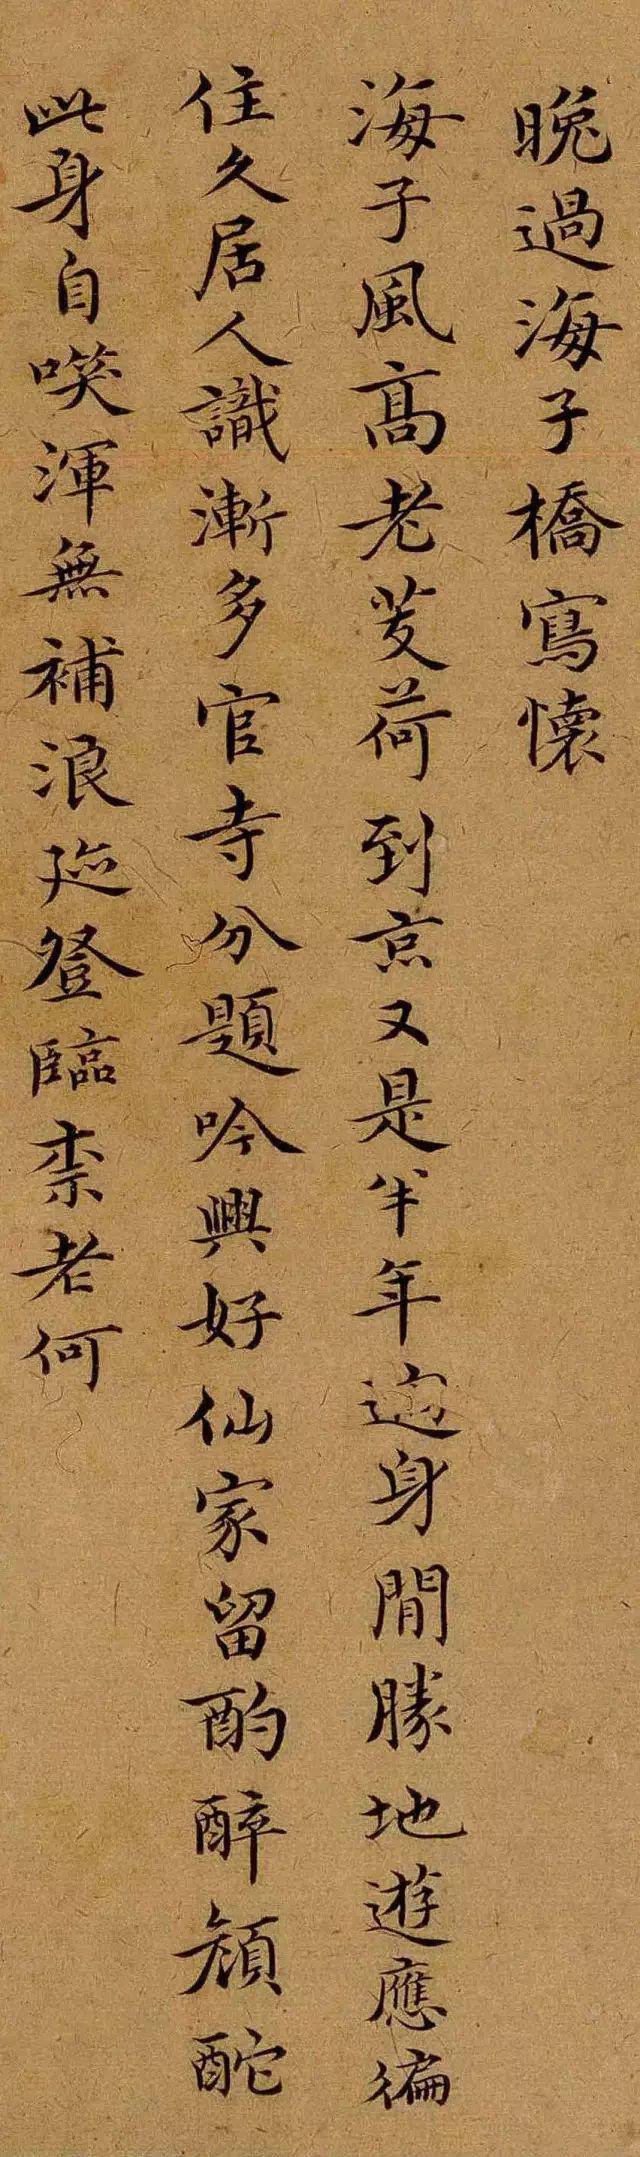 晚過海子橋寫懷
海子風髙老芰荷到京又是半年過身閒勝地遊應徧
住久居人識漸多官寺分題吟興好仙家留酌醉顏酡
此身自咲渾無補浪迹登臨柰老何